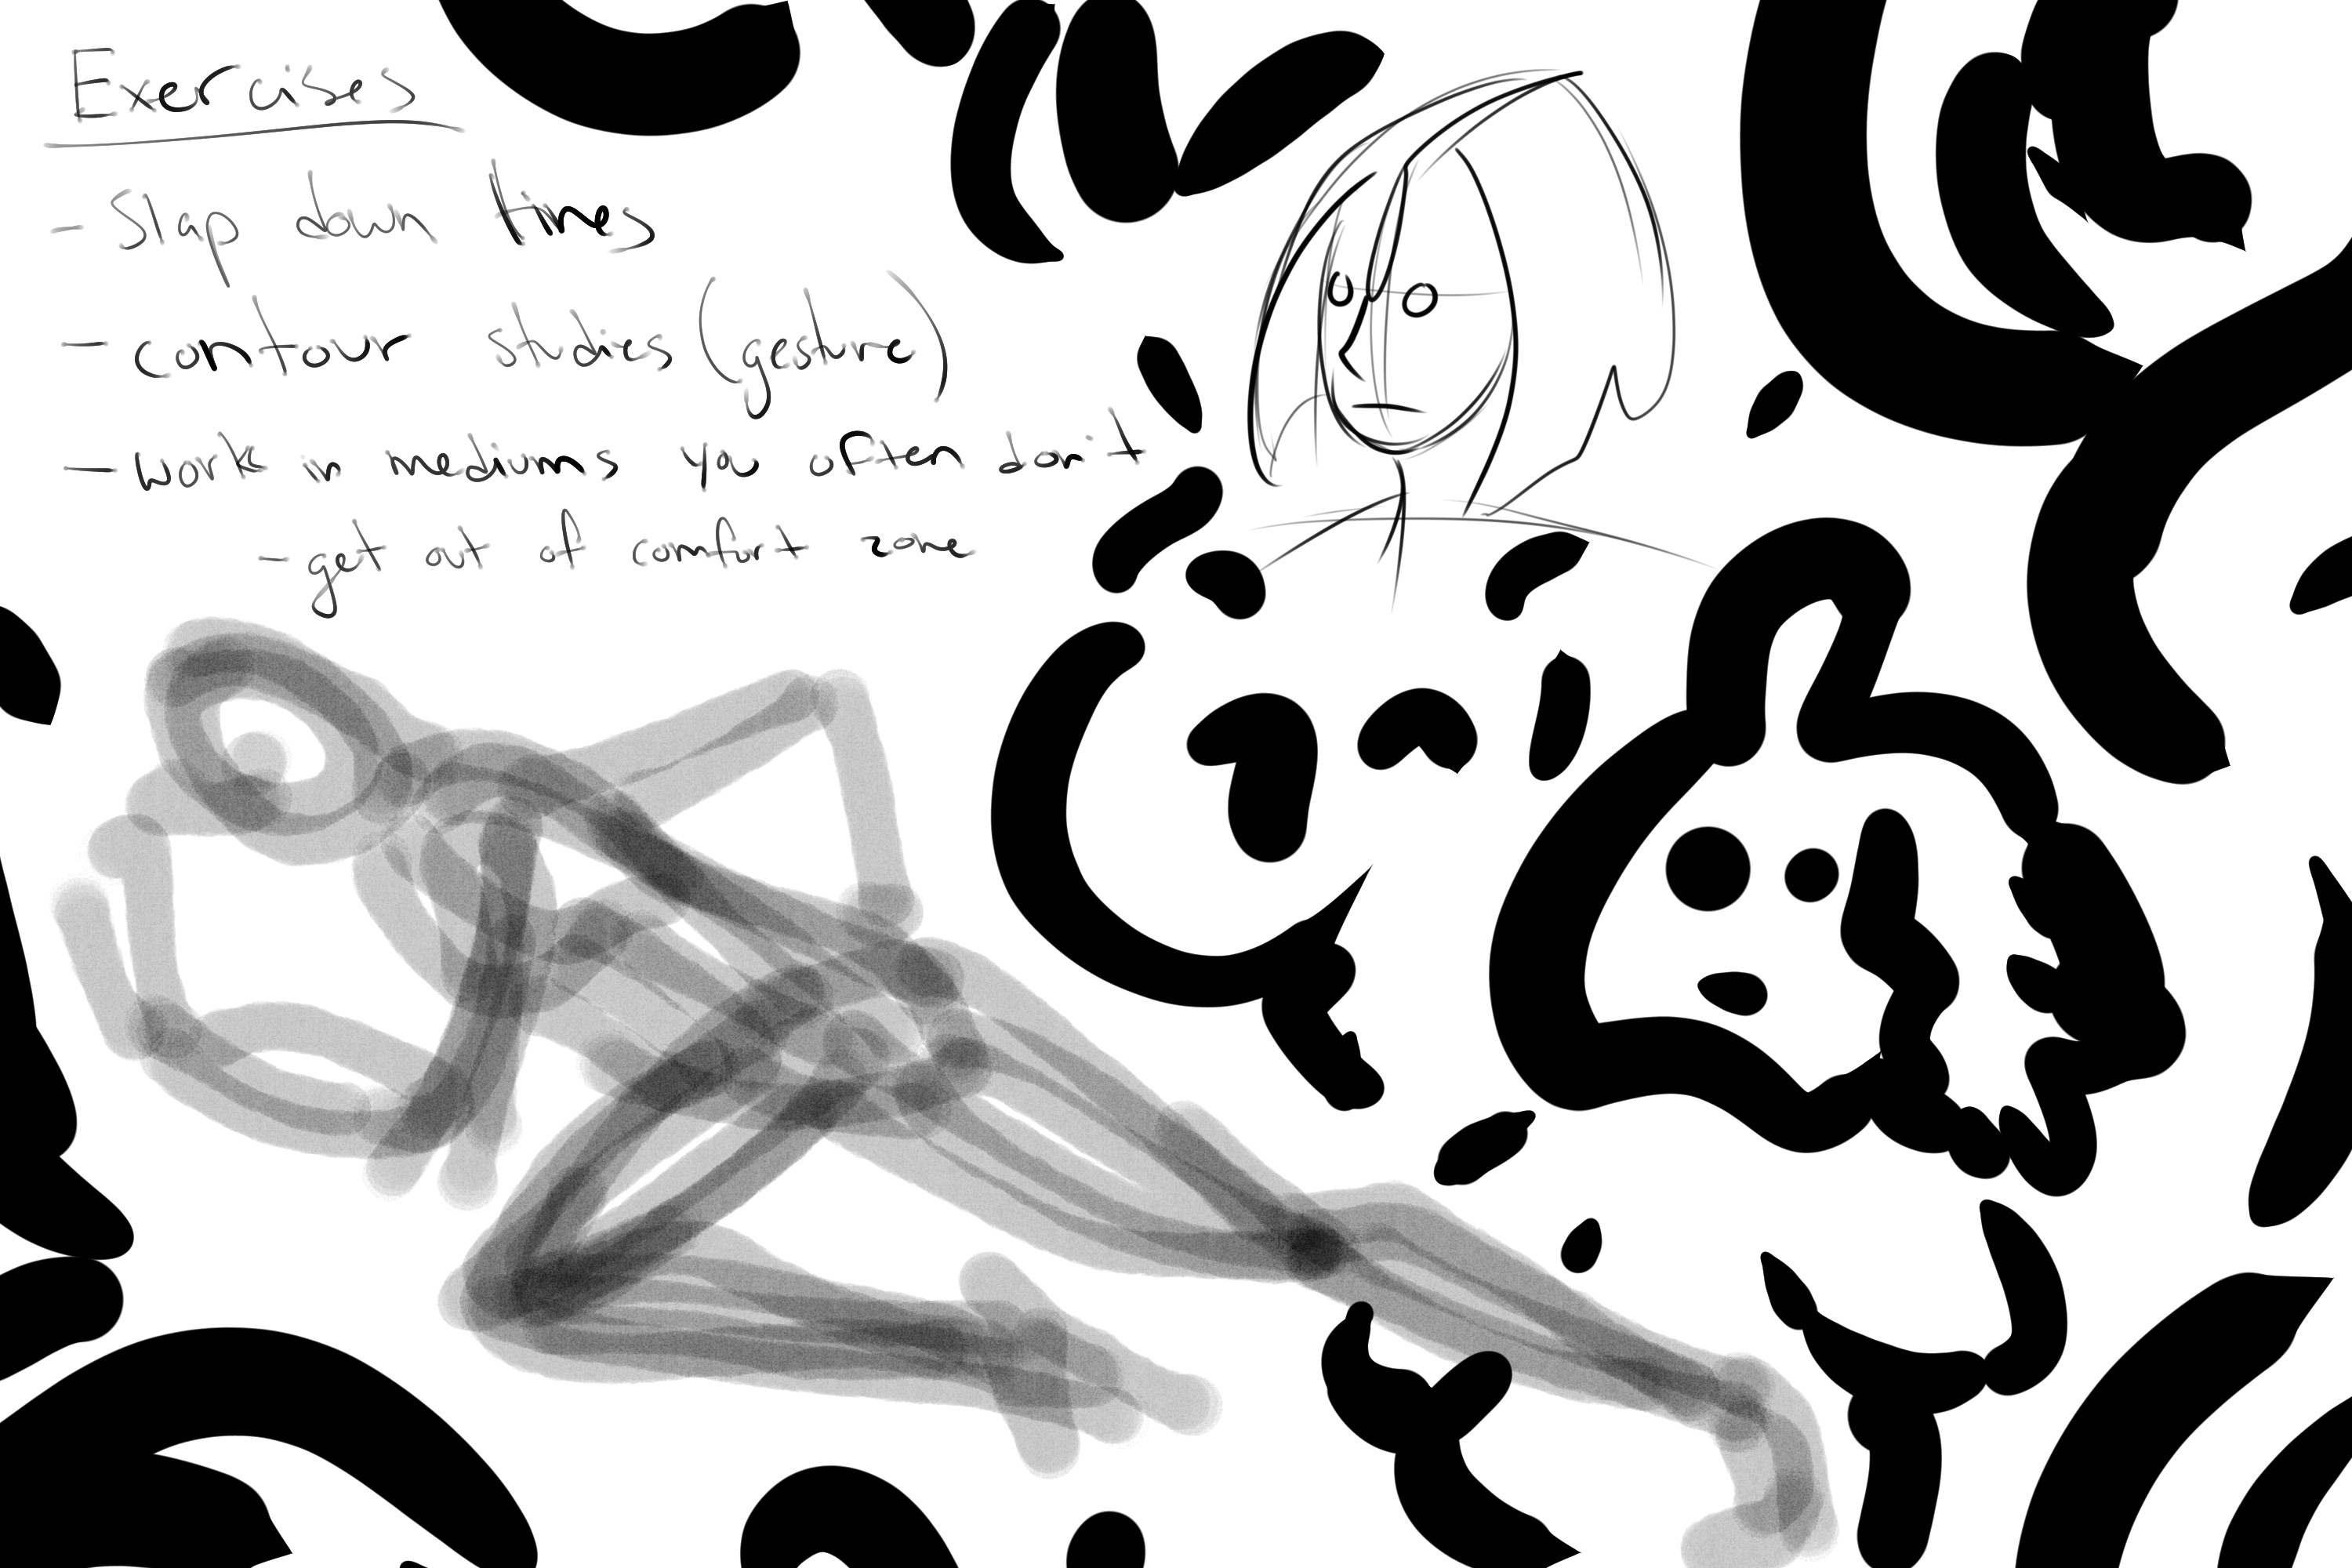 Exercises
- Slap down times
- contour studies (gesture)
- work in mediums you often don't
- get out of comfort zone